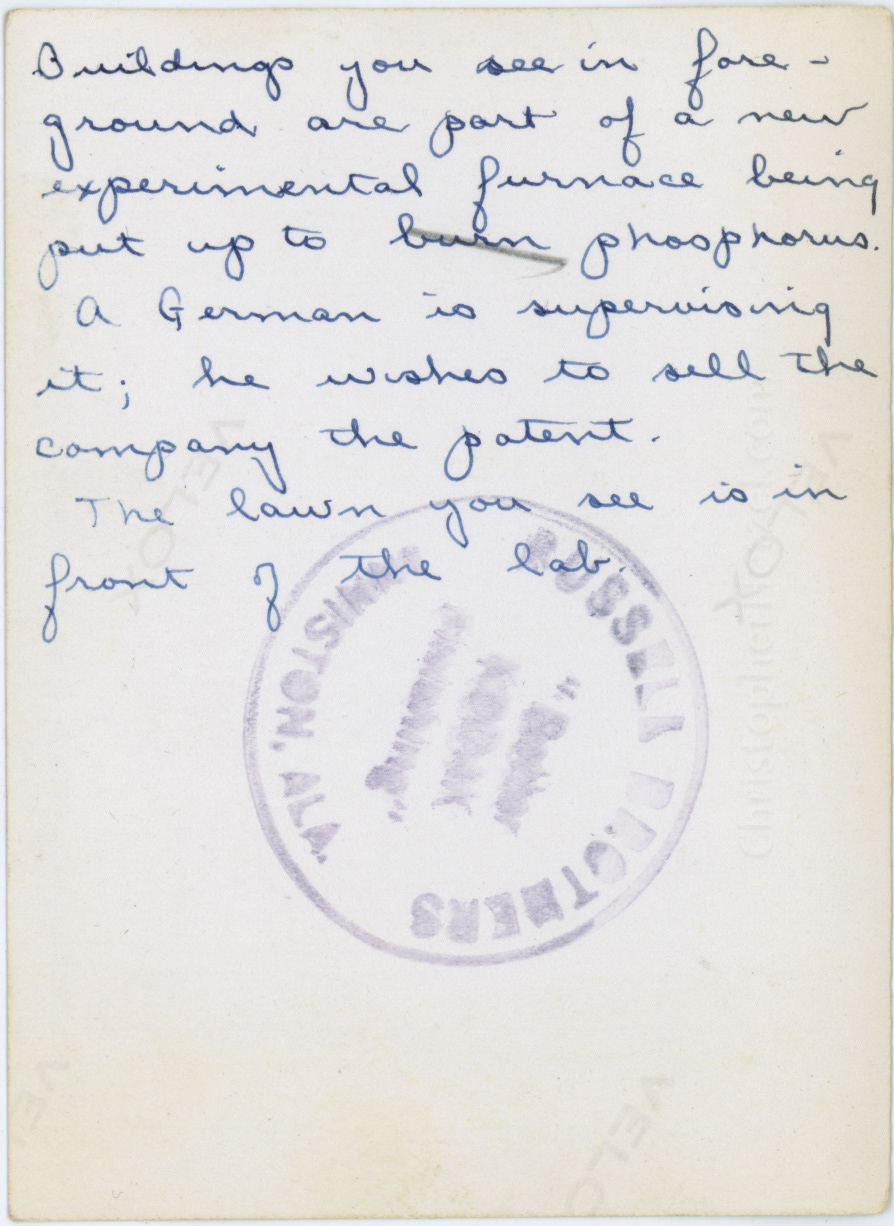 Buildings you see in fore-
ground are part of a new
experimental furnace being
put up to burn phosphorus.
A German is supervising
it; he wishes to sell the
company the patent.
The lawn you see is in
front of the lab.
RUSSELL BROTHERS
ANNISTON, ALA.
"Better
Kodak
Finishing"
VELOX
VELOX
VELOX
VELOX
Christophermoxel.com